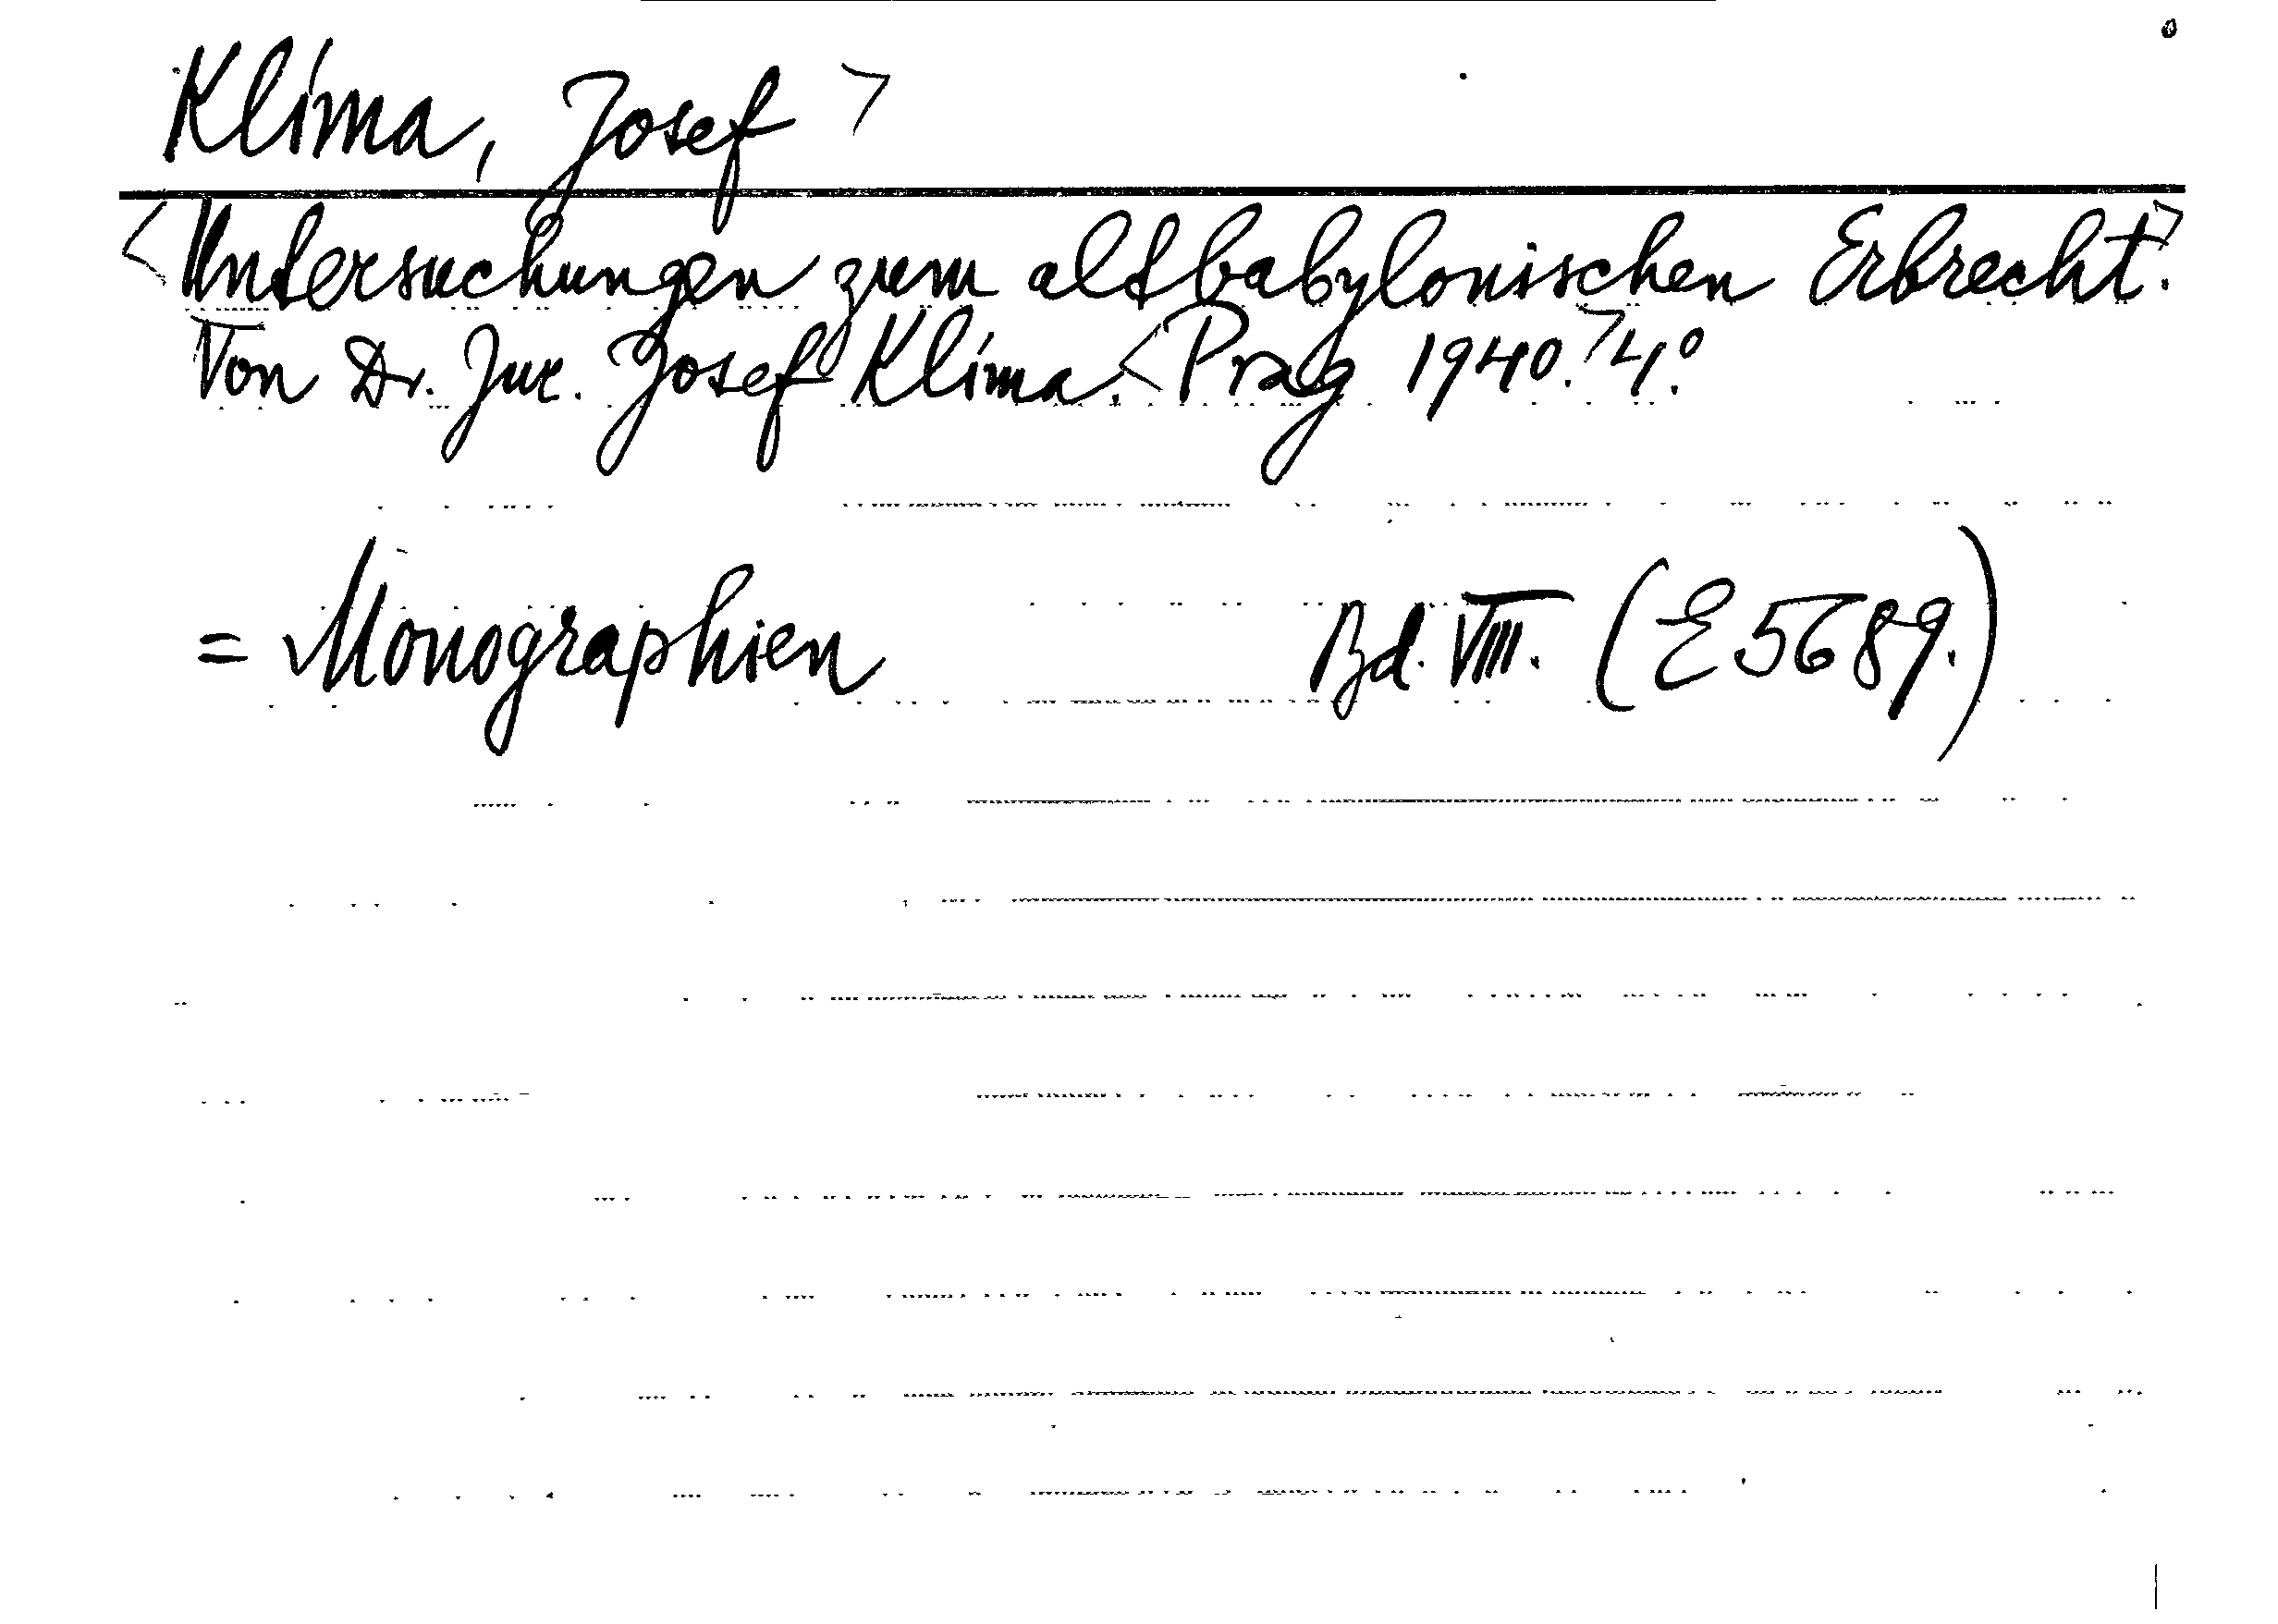 Klíma, Josef >
<Untersuchungen zum altbabylonischen Erbrecht.>
Von Dr. Jur. Josef Klíma. <Prag 1940.> 4.º
= Monographien Bd. VIII. (E 5689.)